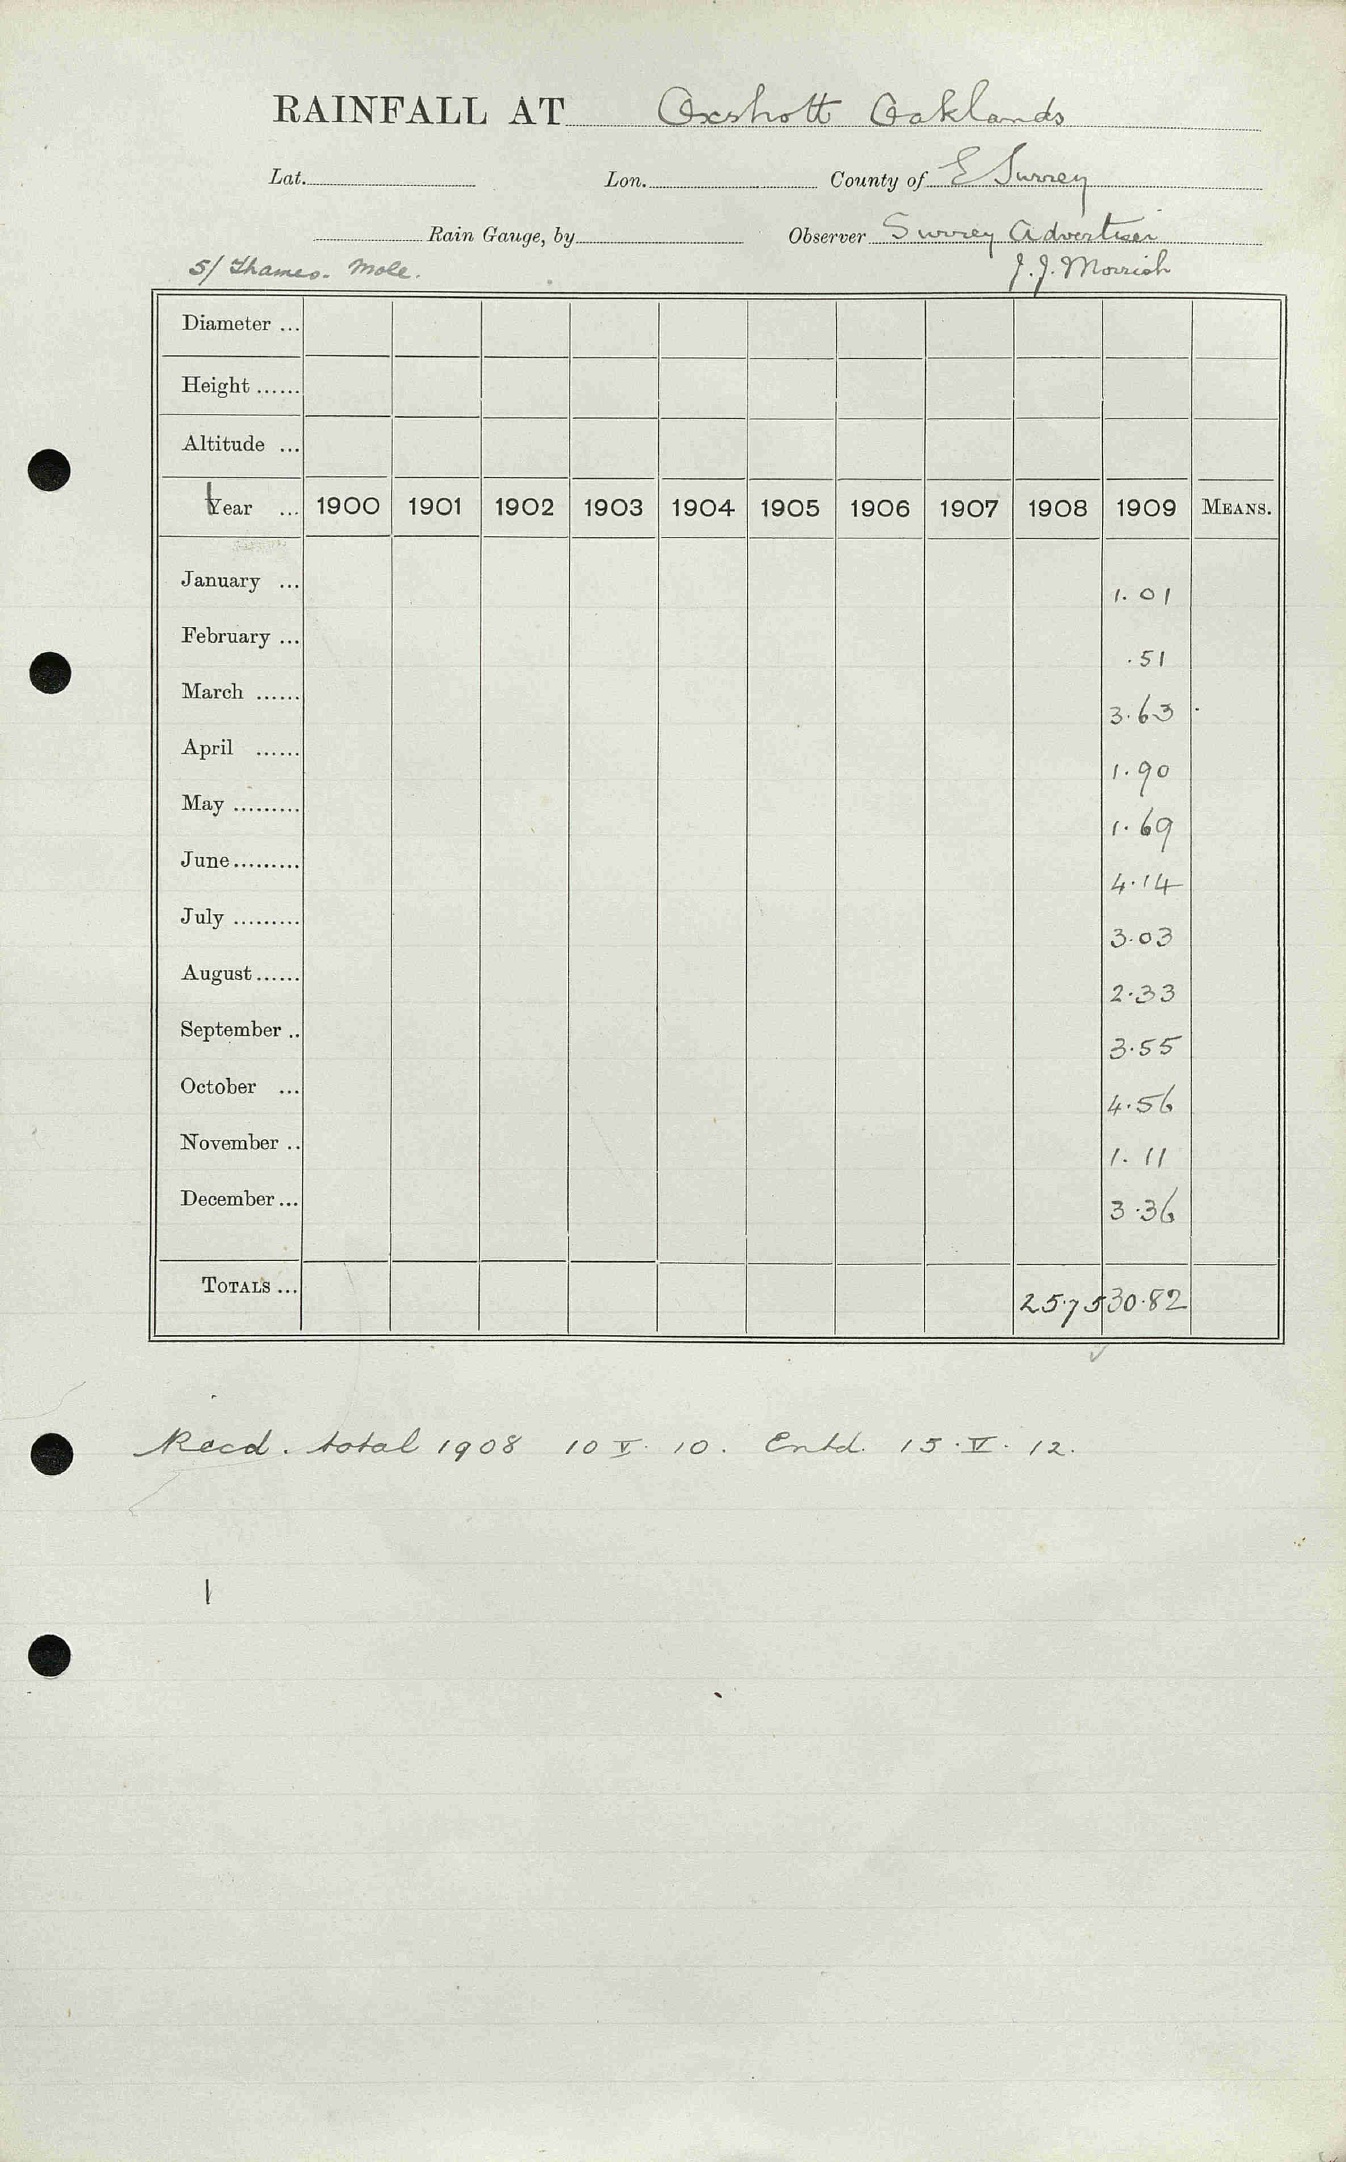 RAINFALL AT Oxshott Oaklands
Lat. Lon. County of E Surrey
Rain Gauge, by Observer Surrey Advertiser
5/ Thames. Mole. J. J. Morrish
Diameter ...
Height ......
Altitude ...
Year ... 1900 1901 1902 1903 1904 1905 1906 1907 1908 1909 MEANS.
January ... 1.01
February ... .51
March ...... 3.63
April ...... 1.90
May ......... 1.69
June ......... 4.14
July ......... 3.03
August ...... 2.33
September .. 3.55
October ... 4.56
November .. 1.11
December ... 3.36
TOTALS ... 25.75 30.82
Recd. total 1908 10 V. 10. Entd. 15. V. 12.